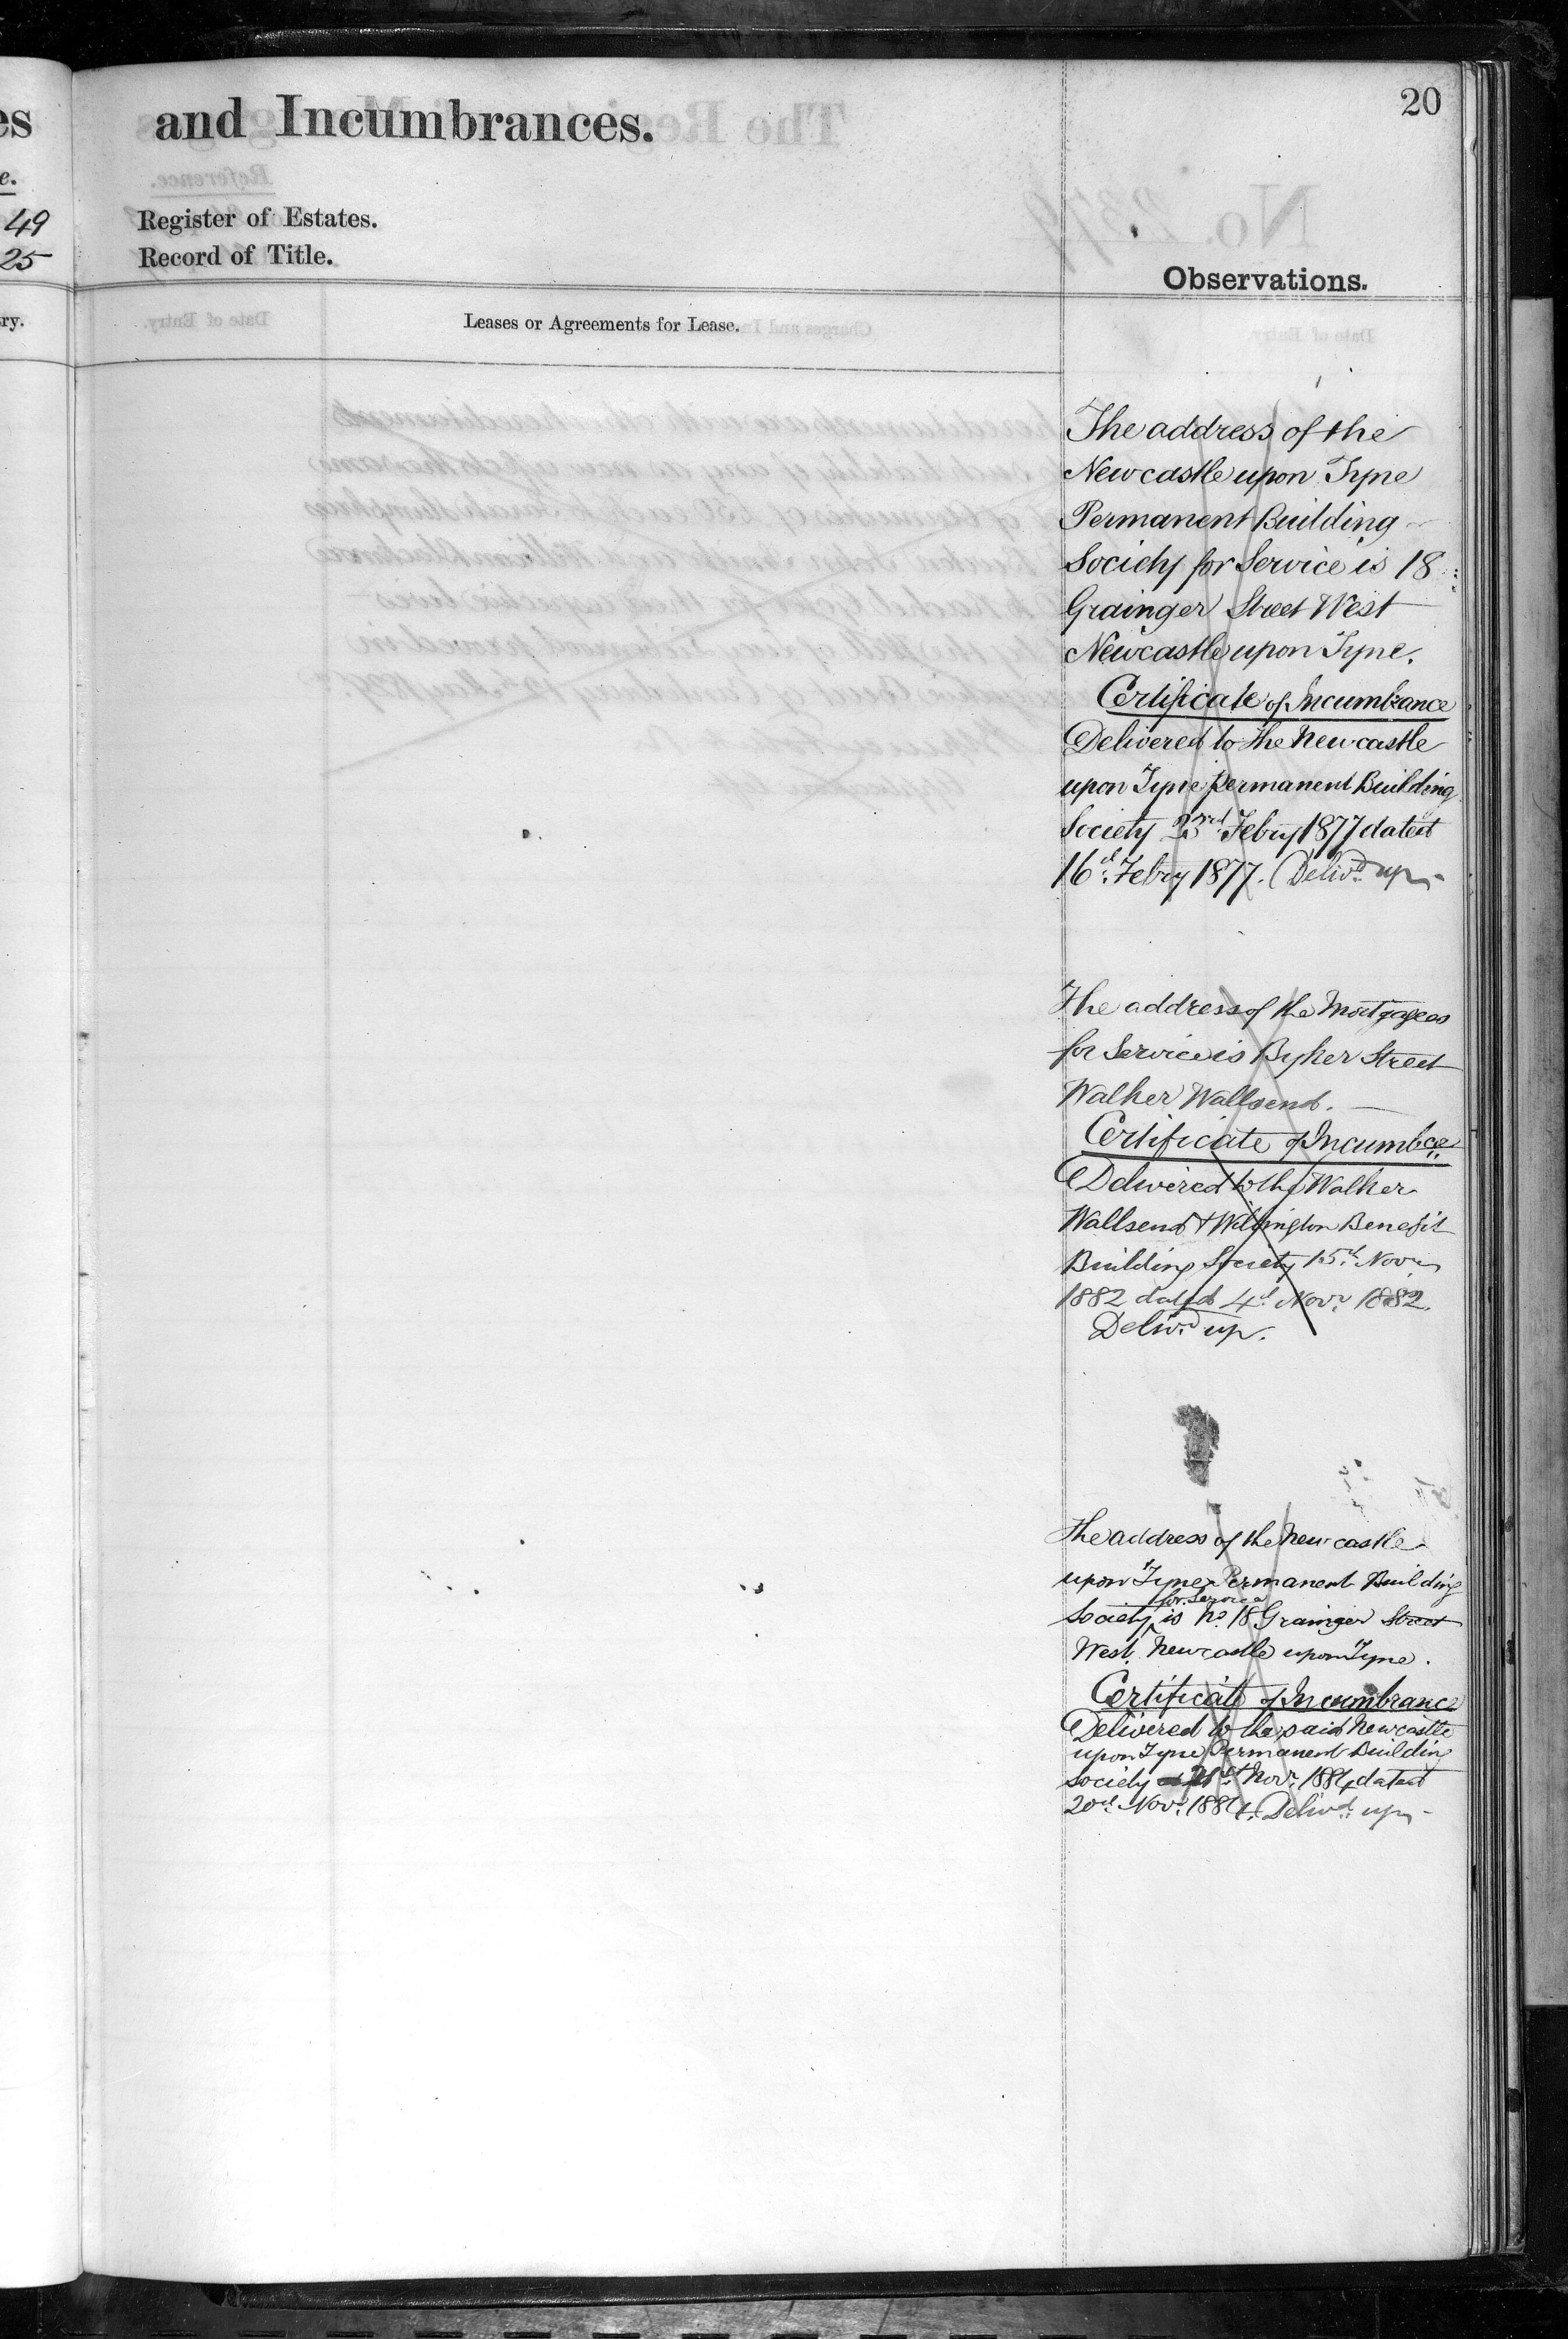 es
e.
49
25
ry.
and Incumbrances.
20
Register of Estates.
Record of Title.
Observations.
Leases or Agreements for Lease.
The address of the
Newcastle upon Tyne
Permanent Building
Society for Service is 18
Grainger Street West
Newcastle upon Tyne.
Certificate of Incumbrance
Delivered to the Newcastle
upon Tyne Permanent Building
Society 23rd Febry 1877 dated
16th Febry 1877. Delivd up
The address of the Mortgagees
for Service is Byker Street
Walker Wallsend.
Certificate of Incumbce
Delivered to the Walker
Wallsend & Willington Benefit
Building Society 15th Novr
1882 dated 4th Novr 1882.
Delivd up.
The address of the Newcastle
upon Tyne Permanent Building
for Service
Society is No. 18 Grainger Street
West Newcastle upon Tyne.
Certificate of Incumbrance
Delivered to the said Newcastle
upon Tyne Permanent Building
Society 21st Novr 1884 dated
20th Novr 1884. Delivd up